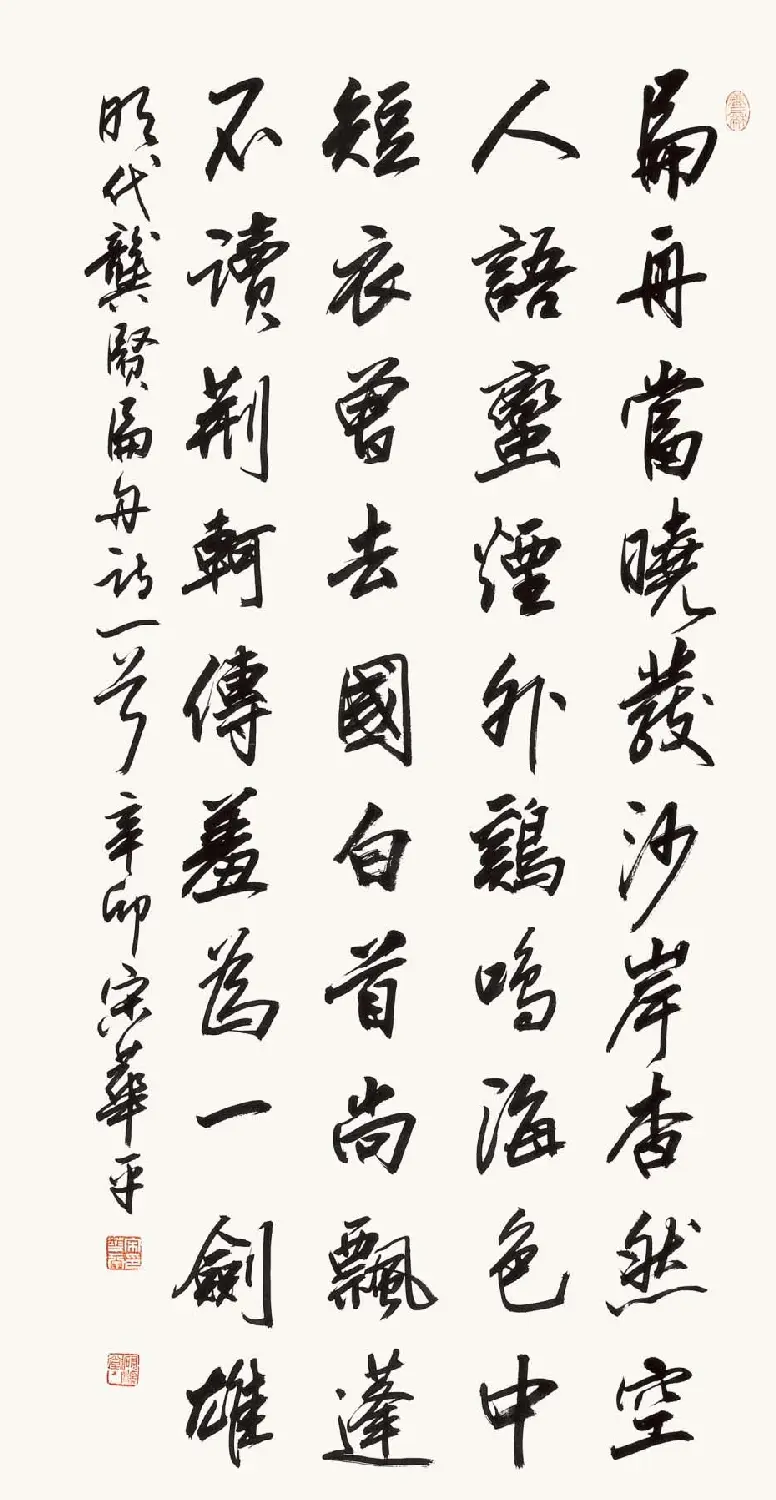 扁舟當曉發沙岸杳然空
人語蠻煙外鷄鳴海色中
短衣曾去國白首尚飄蓬
不讀荆軻傳羞為一劍雄
明代龔賢扁舟詩一首辛卯宋華平